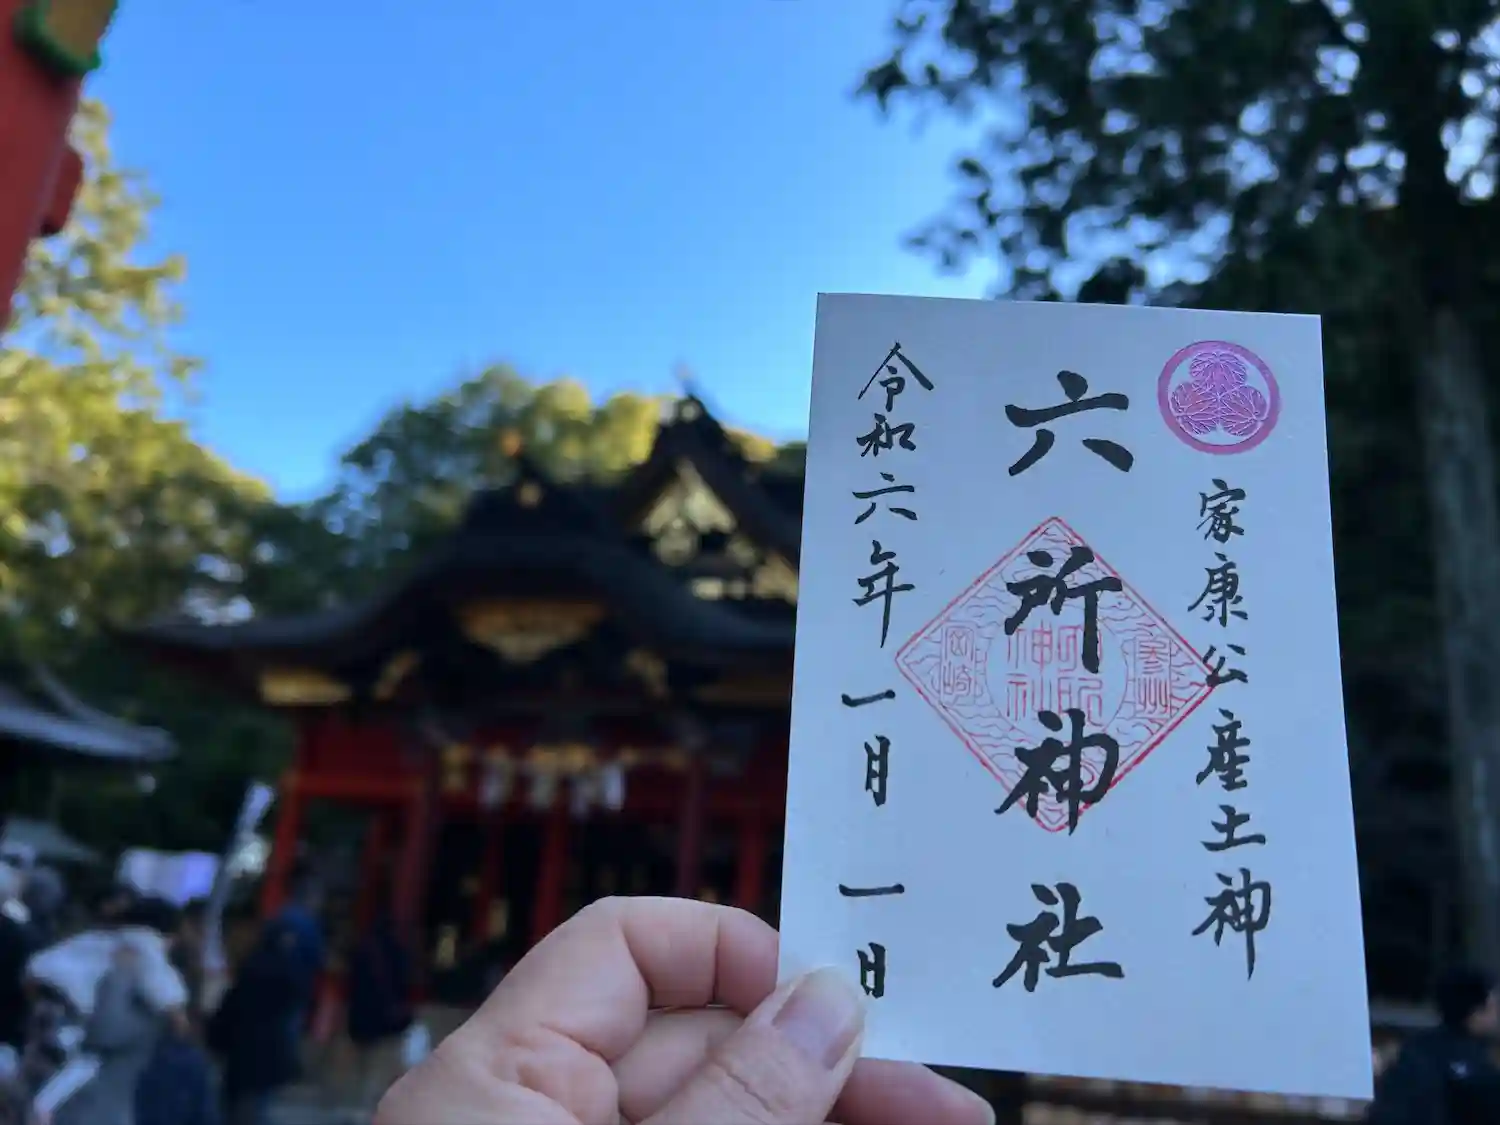 家康公産土神
六所神社
参州
六所神社
岡崎
令和六年一月一日